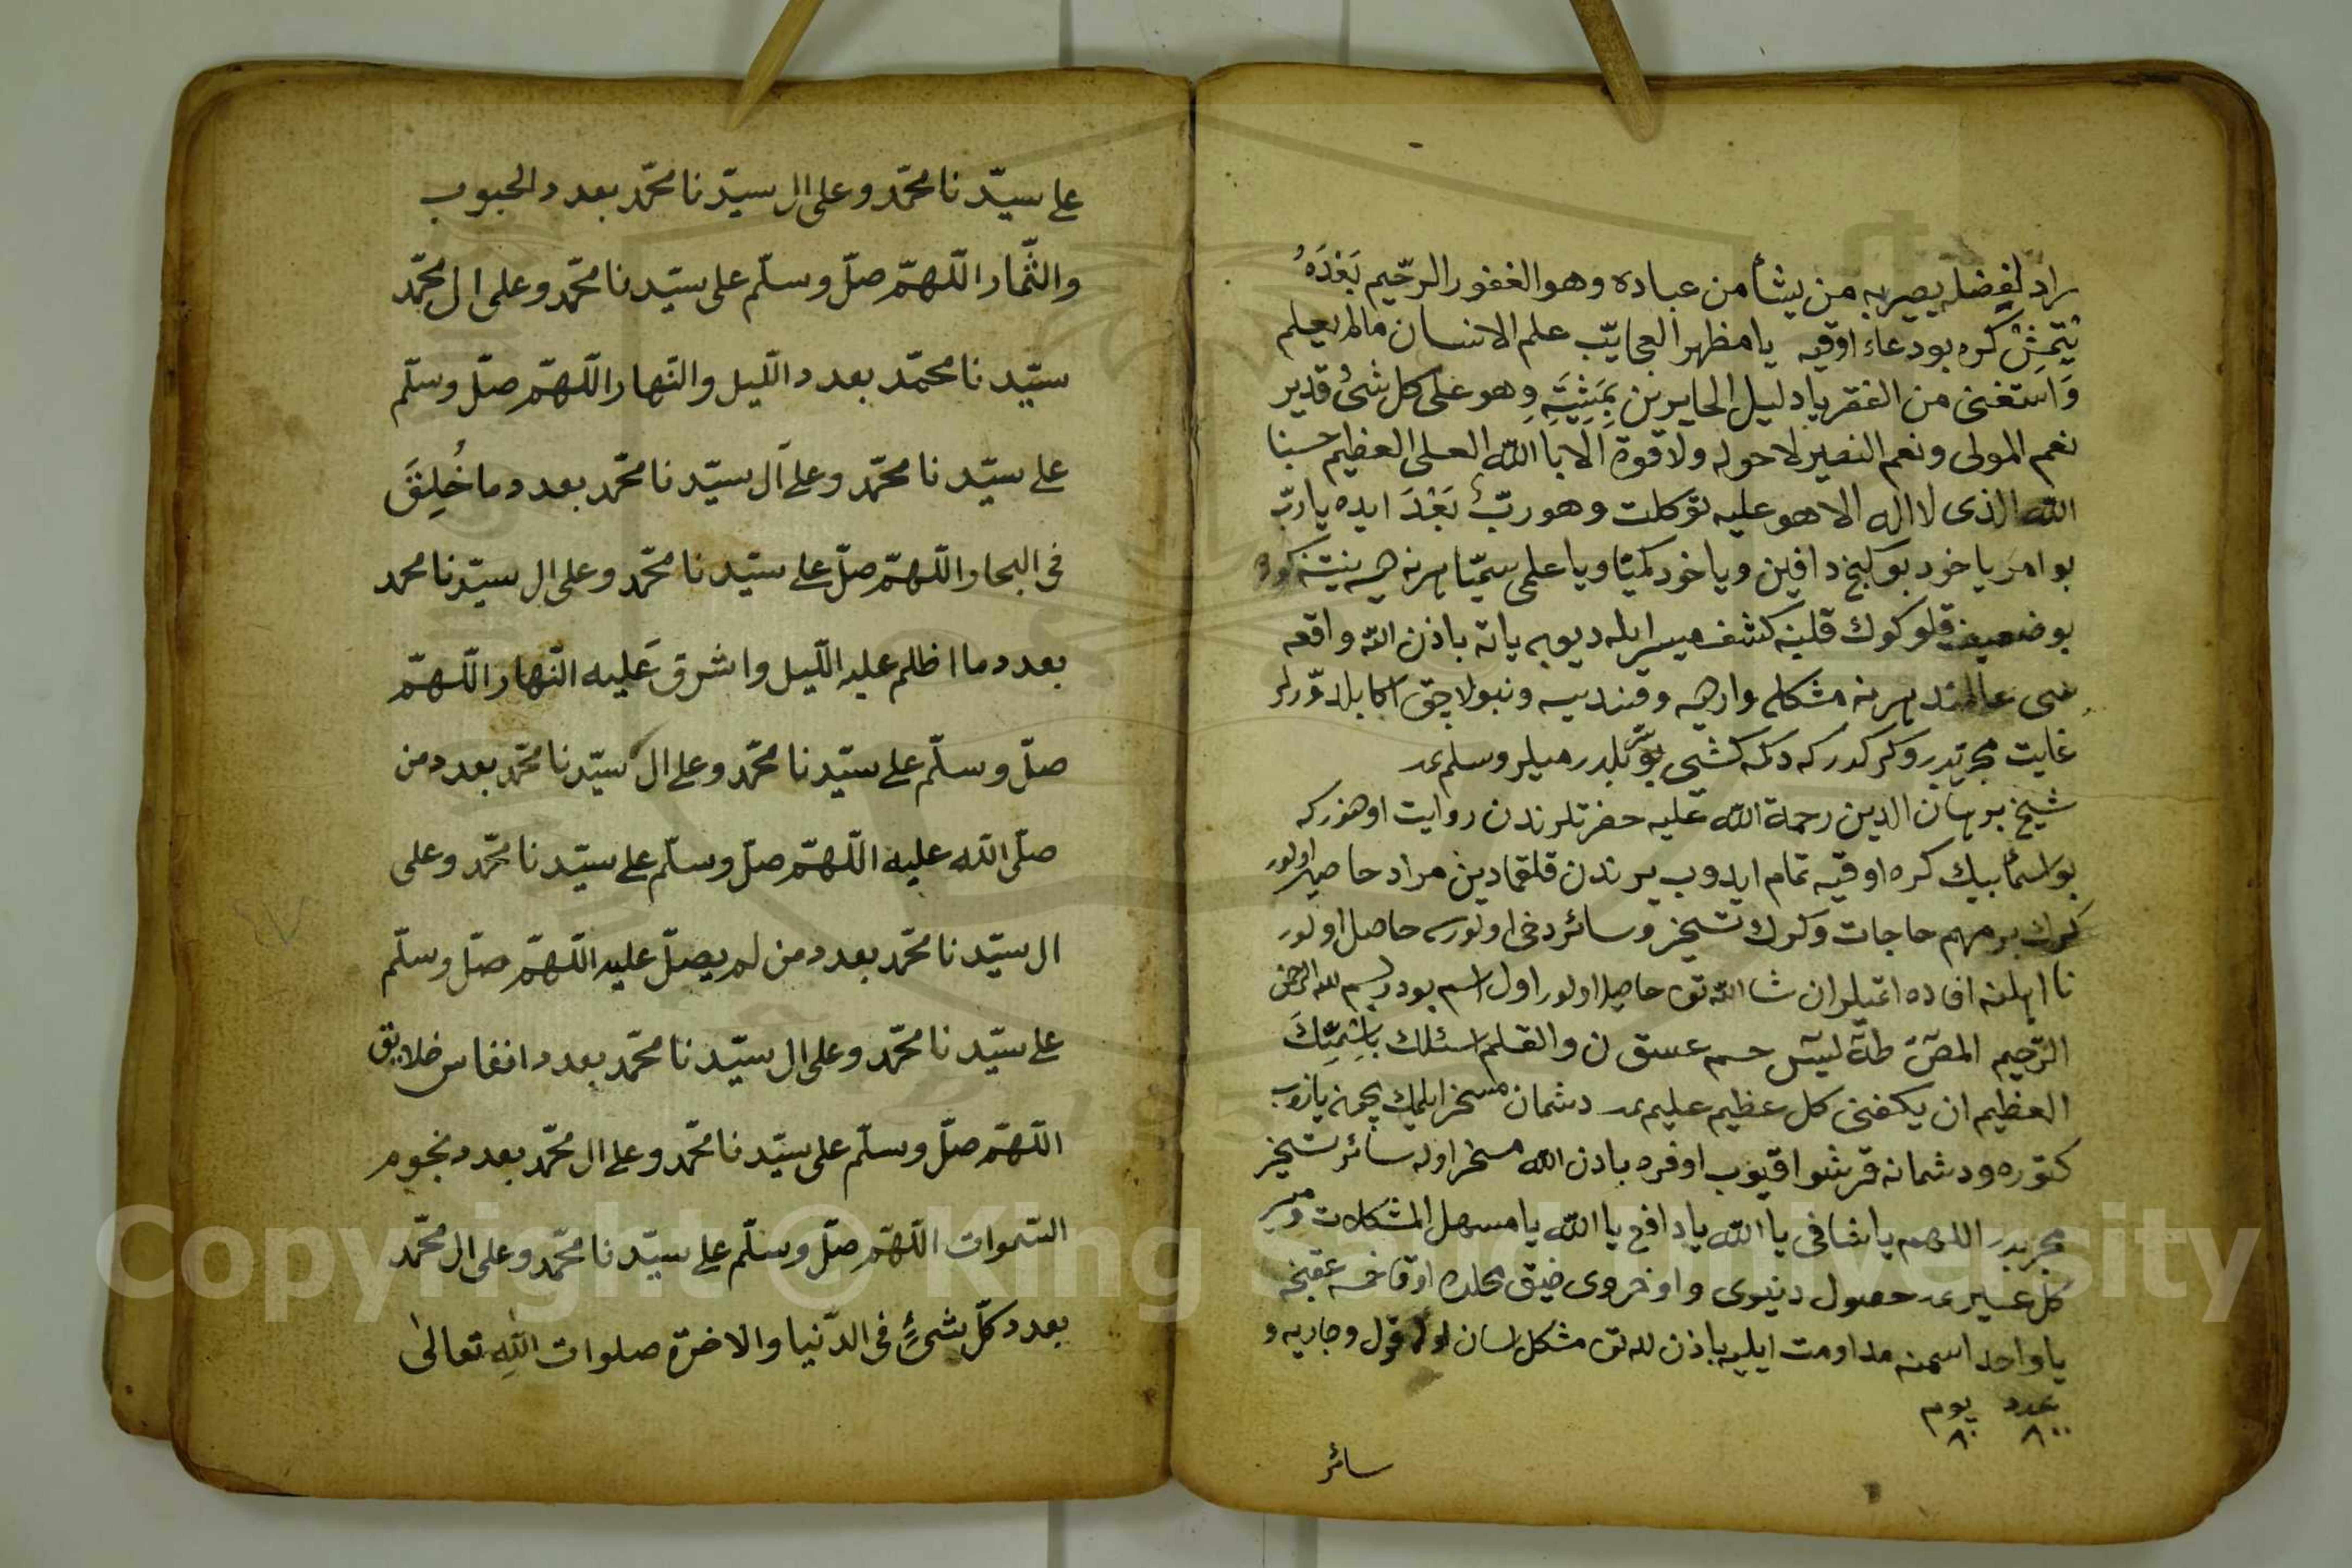 راد لفضله يصيربه من يشأ من عباده وهو الغفور الرحّيم بَعْدَهُ
يَتْمِشْ كره بودعاء اوقيه يا مظهر العجايّب علم الانسان مالم يعلم
وَاستغنى من الفقر يا دليل الحايرين بِمَشِيَّتِهِ وهو على كل شئ قدير
نعم المولى ونعم النصير لا حوله ولا قوة الا باالله العلى العظيم حسبنا
الله الذى لا اله الا هو عليه توكلت وهو ربّ بَعْدَ ايده يا ربّ
بو امر يا خود بو دافين ويا خود ويا علمى هر نه نيتنه
بو ضعيف قلوكوك قلبنه كشف ميسر ايله ديوبه ياته باذن الله واقعه
سى هر نه مشكلم وارهسه ونبولاجق اكا بلدوّرلر
غايت مجربدر وكركدركه دكمه كشى بلدرميلر وسلم
شيخ برهان الدين رحمة الله عليه حضرتلرندن روايت
بو اسمأ بيك كره اوقيه تمام ايدوب يرندن قلقمادين مراد حاصل اولور
كرك بر مهم حاجات وكرك تسخير وسائر دخى اولورسه حاصل اولور
نا اهلنه افاده اتميلر ان شا الله تع حاصل اولور اول اسم بودر بسم لله الرحمن
الرّحيم المصٓ طهٓ ليسٓ حم عسق ن والقلم اسئلك باسْمِكَ
العظيم ان يكفنى كل عظيم عليم دشمان مسخر ايلمك يازوب
كتوره ودشمانه قرشو اقيوب اوفره باذن الله مسخر اوله سائر تسخير
مجربدر اللهم يا شافى يا الله يا دافع يا الله يا مسهل المشكلات وميسر
كل عسير حصول دينوى واوخروى ضيق محلده اوقات خمسه عقبنجه
يا واحد اسمنه مداومت ايليه باذن لله تع مشكل اسان اولور قول وجاريه و
عدد يوم
٨٠٠ ٨٠
سائر
على سيّدنا محمّد وعلى ال سيّدنا محمّد بعدد الحبوب
والثّمار اللّهمّ صلّ وسلّم على سيّدنا محمّد وعلى ال محمّد
سيّدنا محمّد بعدد اللّيل والنّهار اللّهمّ صلّ وسلّم
على سيّدنا محمّد وعلى آل سيّدنا محمّد بعدد ما خُلِقَ
فى البحار اللّهمّ صلّ على سيّدنا محمّد وعلى ال سيّدنا محمد
بعدد ما اظلم عليه اللّيل واشرق عَليه النّهار اللّهمّ
صلّ وسلّم على سيّدنا محمّد وعلى ال سيّدنا محمّد بعدد من
صلّى الله عليه اللّهمّ صلّ وسلّم على سيّدنا محمّد وعلى
ال سيّدنا محمّد بعدد من لم يصلّ عليه اللّهمّ صلّ وسلّم
على سيّدنا محمّد وعلى ال سيّدنا محمّد بعدد انفاس خلايق
اللّهمّ صلّ وسلّم على سيّدنا محمّد وعلى ال محمّد بعدد نجوم
السّموات اللّهمّ صلّ وسلّم على سيّدنا محمّد وعلى ال محمّد
بعدد كلّ شئٍ فى الدّنيا والاخرة صلوات اللّهِ تعالىٰ
٤٧
Copyright © King Saud University